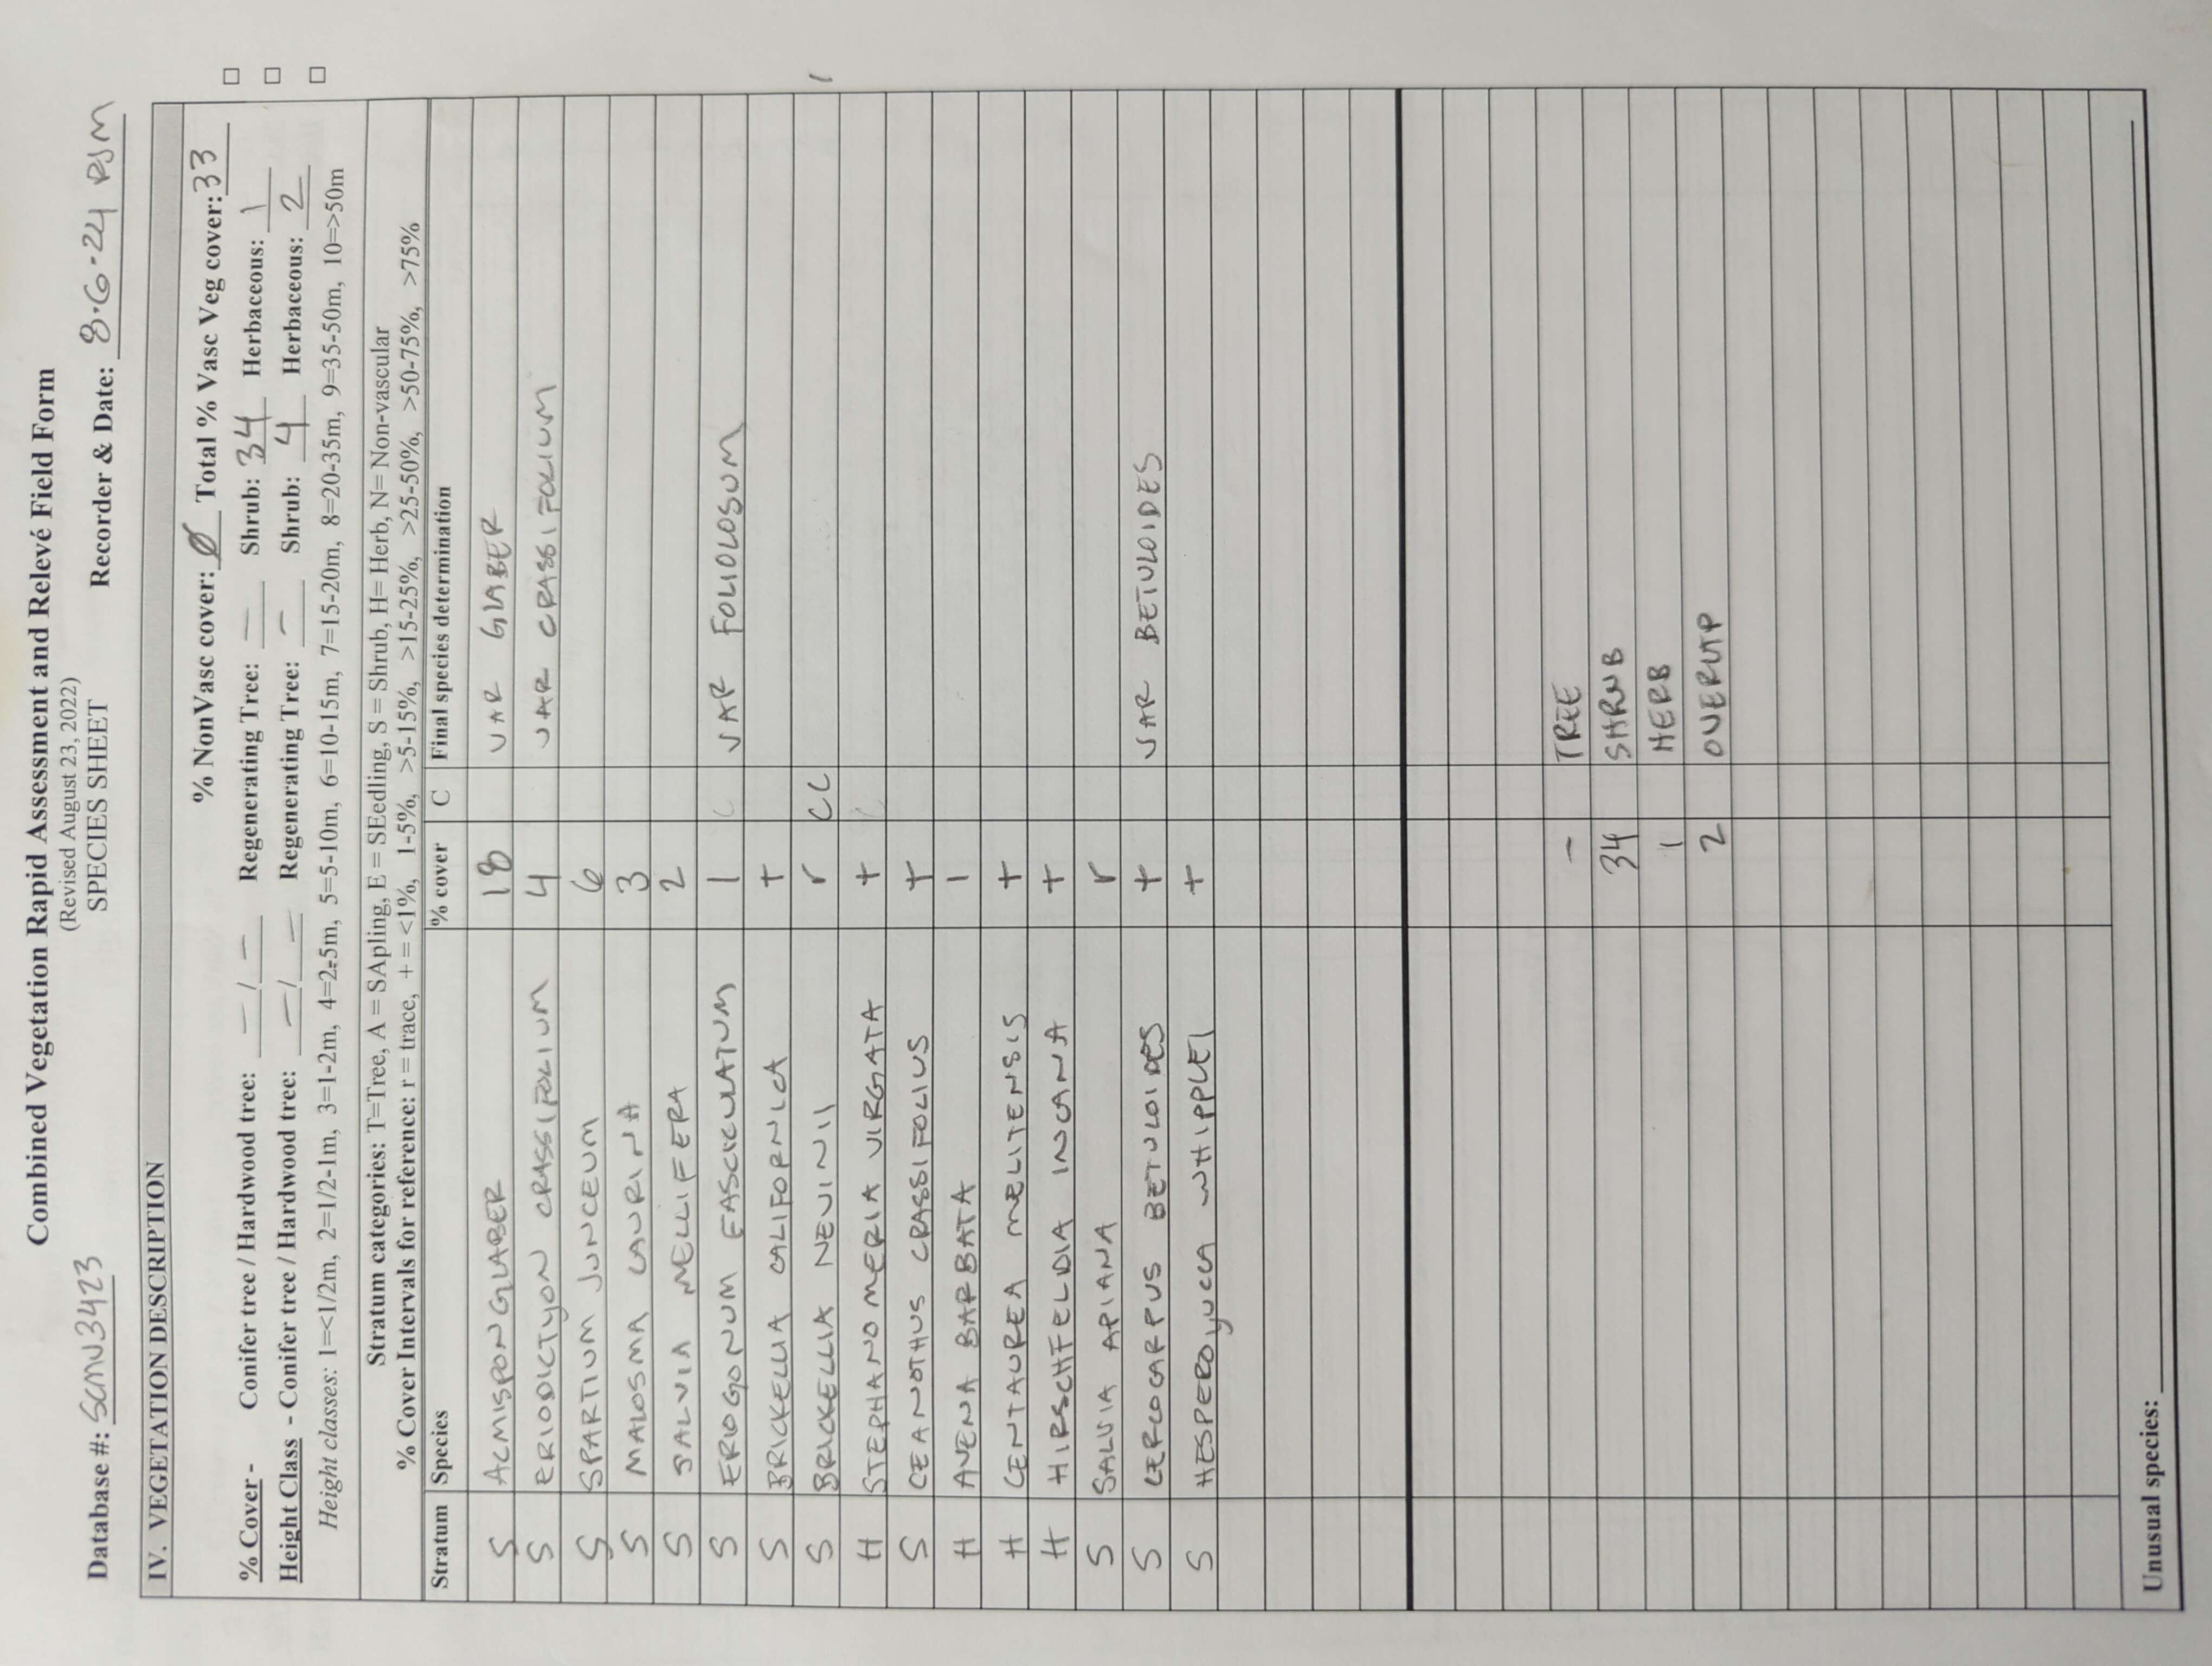 Combined Vegetation Rapid Assessment and Relevé Field Form
(Revised August 23, 2022)
SPECIES SHEET
Database #: SCMU3423 Recorder & Date: 8.6.24 RJM
IV. VEGETATION DESCRIPTION
% NonVasc cover: Ø Total % Vasc Veg cover: 33
% Cover - Conifer tree / Hardwood tree: — / — Regenerating Tree: — Shrub: 34 Herbaceous: 1
Height Class - Conifer tree / Hardwood tree: — / — Regenerating Tree: — Shrub: 4 Herbaceous: 2
Height classes: 1=<1/2m, 2=1/2-1m, 3=1-2m, 4=2-5m, 5=5-10m, 6=10-15m, 7=15-20m, 8=20-35m, 9=35-50m, 10=>50m
Stratum categories: T=Tree, A = SApling, E = SEedling, S = Shrub, H= Herb, N= Non-vascular
% Cover Intervals for reference: r = trace, + = <1%, 1-5%, >5-15%, >15-25%, >25-50%, >50-75%, >75%
Stratum Species % cover C Final species determination
S ACMISPON GLABER 18 VAR GLABER
S ERIODICTYON CRASSIFOLIUM 4 VAR CRASSIFOLIUM
S SPARTIUM JUNCEUM 6
S MALOSMA LAURINA 3
S SALVIA MELLIFERA 2
S ERIOGONUM FASCICULATUM 1 VAR FOLIOLOSUM
S BRICKELLIA CALIFORNICA +
S BRICKELLIA NEVINII r CC
H STEPHANOMERIA VIRGATA +
S CEANOTHUS CRASSIFOLIUS +
H AVENA BARBATA 1
H CENTAUREA MELITENSIS +
H HIRSCHFELDIA INCANA +
S SALVIA APIANA r
S CERCOCARPUS BETULOIDES + VAR BETULOIDES
S HESPEROYUCCA WHIPPLEI +
– TREE
34 SHRUB
1 HERB
2 OVERLAP
Unusual species: